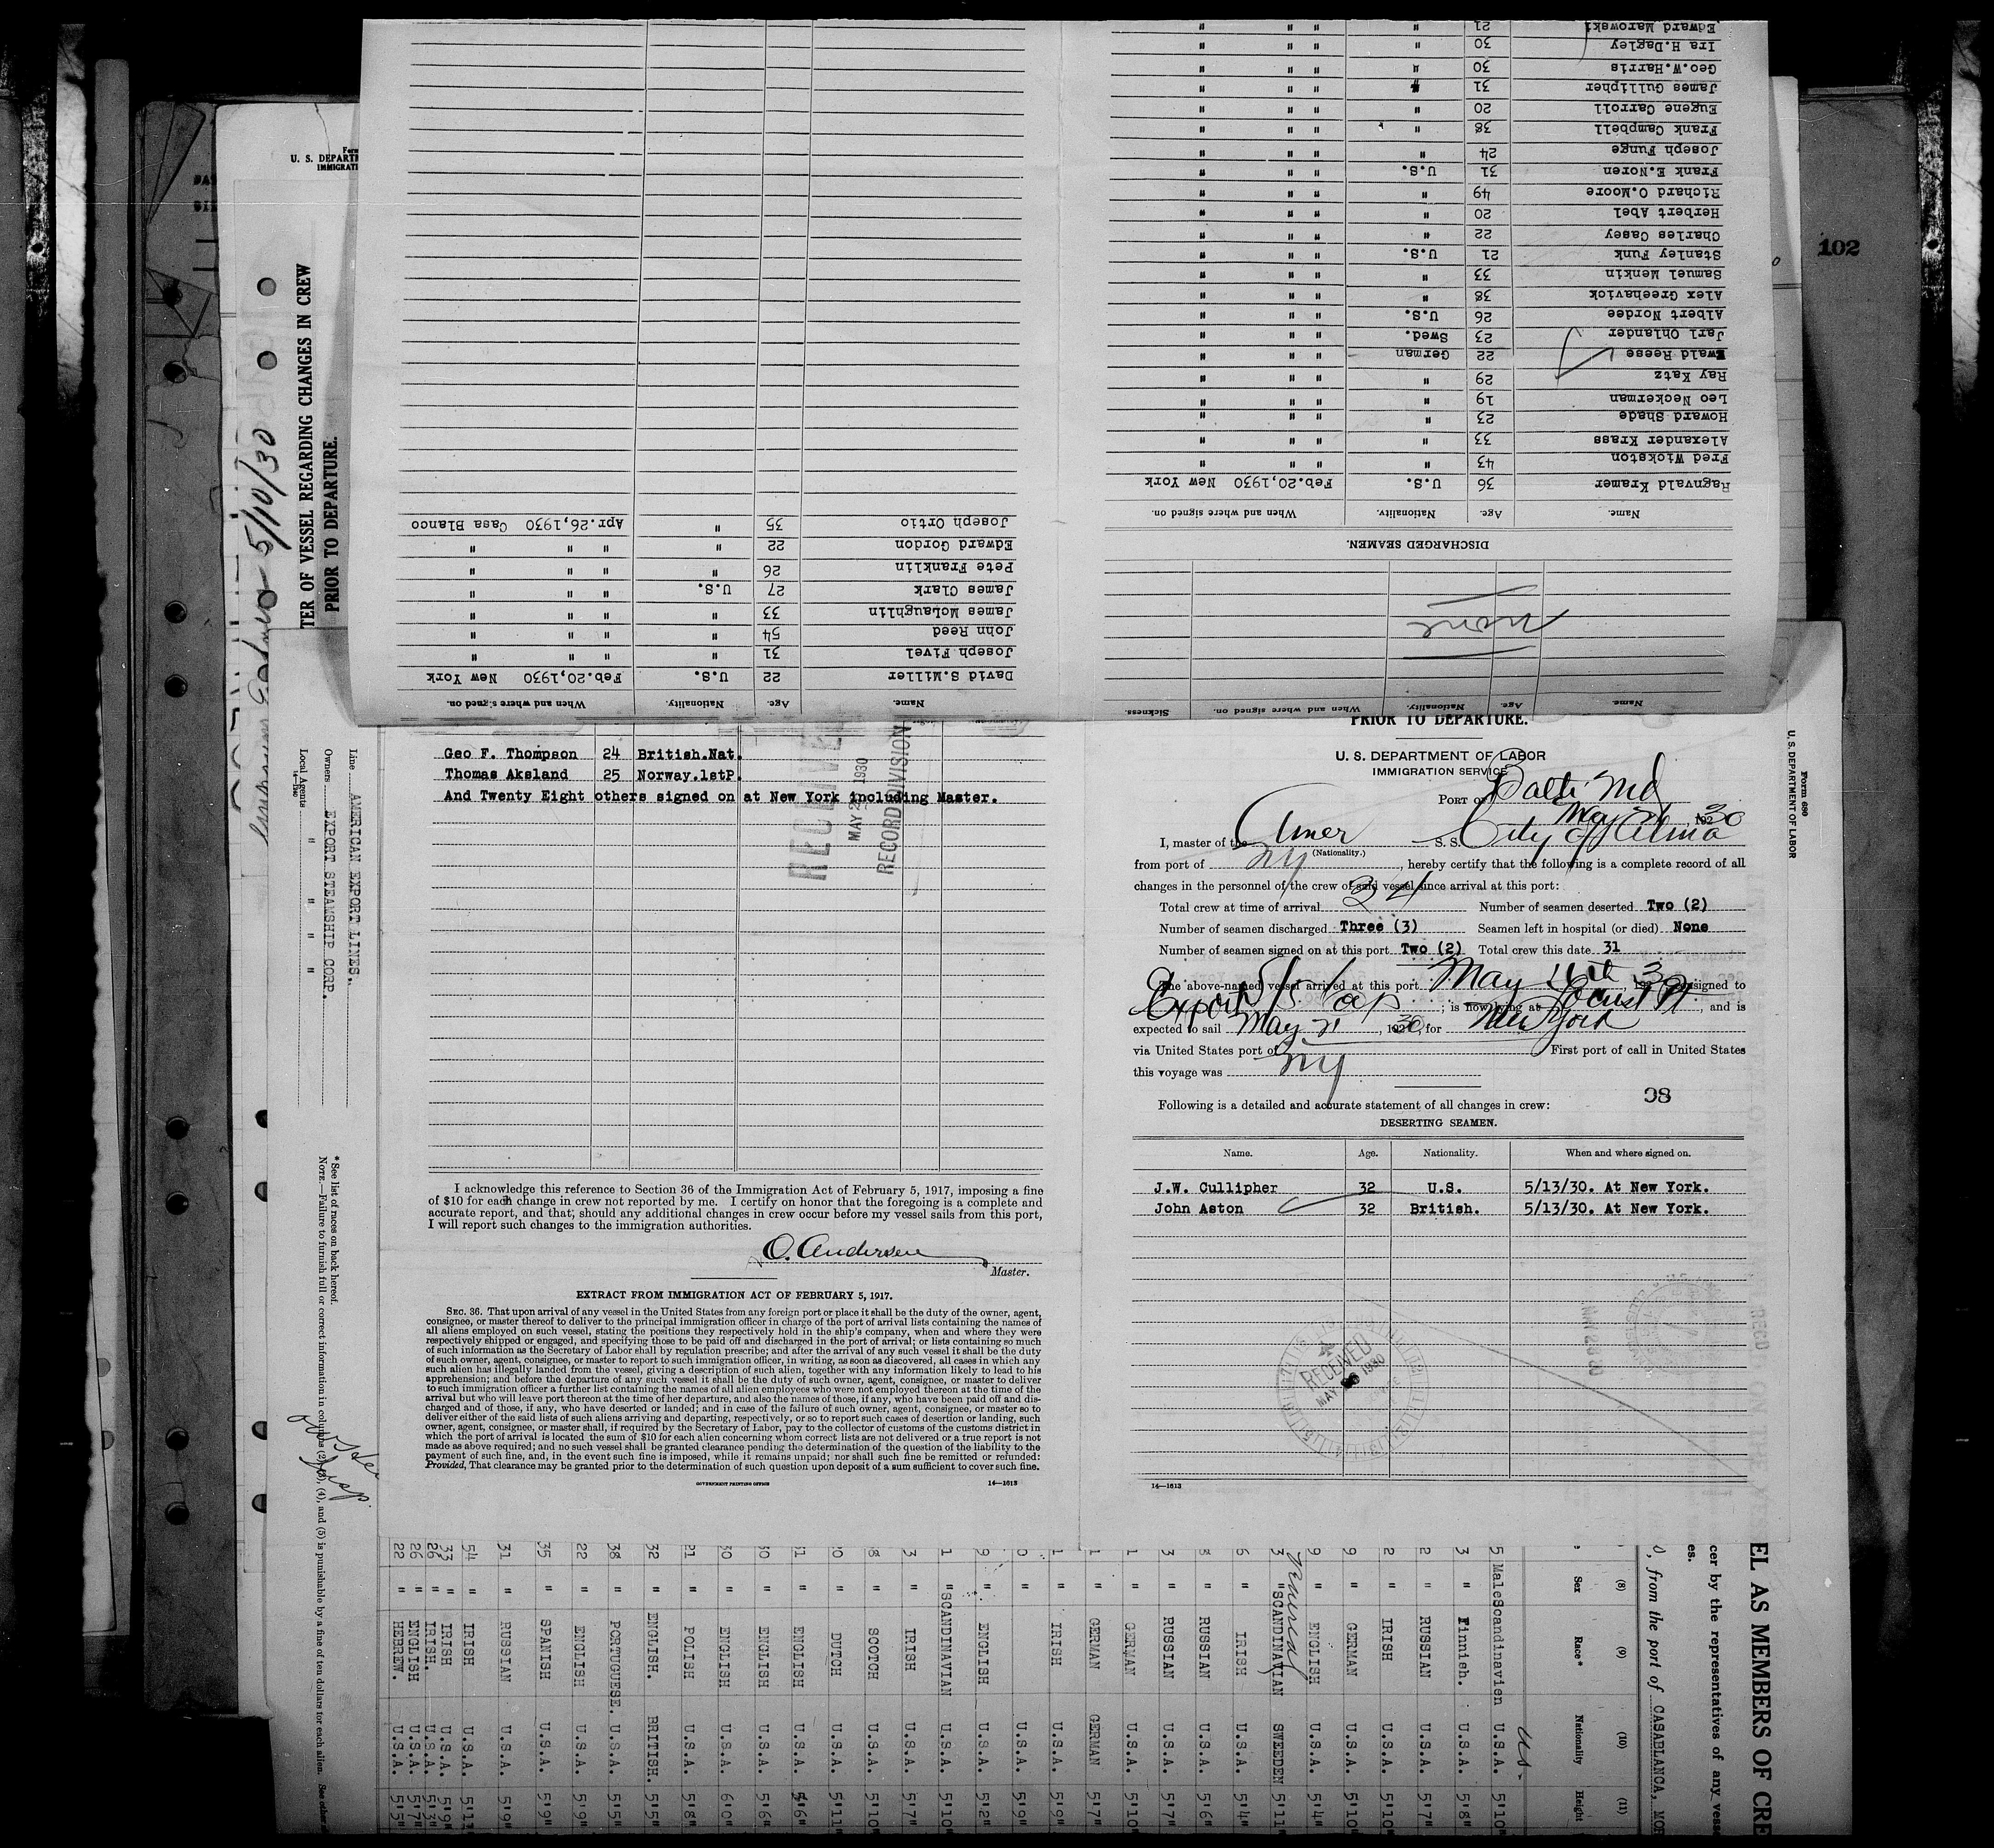 Form
U. S. DEPARTM
IMMIGRATI
TER OF VESSEL REGARDING CHANGES IN CREW
PRIOR TO DEPARTURE.
5/10/30
102
Name. Age. Nationality. When and where signed on. Sickness.
None
DISCHARGED SEAMEN.
Name. Age. Nationality. When and where signed on.
Ragnvald Kramer 36 U.S. Feb.20,1930 New York
Fred Wickston 43 " " " "
Alexander Krass 33 " " " "
Howard Shade 23 " " " "
Leo Neckerman 19 " " " "
Ray Katz 29 " " " "
Ewald Reese 22 German " " "
Jarl Ohlander 23 Swed. " " "
Albert Nordee 26 U.S. " " "
Alex Greehavick 38 " " " "
Samuel Menkin 33 " " " "
Stanley Funk 21 U.S. " " "
Charles Casey 22 " " " "
Herbert Abel 20 " " " "
Richard O.Moore 49 " " " "
Frank E.Noren 31 U.S. " " "
Joseph Funge 24 " " " "
Frank Campbell 38 " " " "
Eugene Carroll 20 " " " "
James Gullipher 31 " " " "
Geo.W.Harris 30 " " " "
Ira H.Dagley 30 " " " "
Edward Marowski 21 " " " "
Name. Age. Nationality. When and where signed on.
David S.Miller 22 U.S. Feb.20,1930 New York
Joseph Fivel 31 " " " "
John Reed 54 " " " "
James McLaughlin 33 " " " "
James Clark 27 U.S. " " "
Pete Franklin 26 " " " "
Edward Gordon 22 " " " "
Joseph Ortio 35 " Apr.26,1930 Casa Blanco
Geo F. Thompson 24 British.Nat.
Thomas Aksland 25 Norway.1stP.
And Twenty Eight others signed on at New York including Master.
RECEIVED
MAY 2 1930
RECORD DIVISION
I acknowledge this reference to Section 36 of the Immigration Act of February 5, 1917, imposing a fine
of $10 for each change in crew not reported by me. I certify on honor that the foregoing is a complete and
accurate report, and that, should any additional changes in crew occur before my vessel sails from this port,
I will report such changes to the immigration authorities.
O. Andersen
Master.
EXTRACT FROM IMMIGRATION ACT OF FEBRUARY 5, 1917.
SEC. 36. That upon arrival of any vessel in the United States from any foreign port or place it shall be the duty of the owner, agent,
consignee, or master thereof to deliver to the principal immigration officer in charge of the port of arrival lists containing the names of
all aliens employed on such vessel, stating the positions they respectively hold in the ship's company, when and where they were
respectively shipped or engaged, and specifying those to be paid off and discharged in the port of arrival; or lists containing so much
of such information as the Secretary of Labor shall by regulation prescribe; and after the arrival of any such vessel it shall be the duty
of such owner, agent, consignee, or master to report to such immigration officer, in writing, as soon as discovered, all cases in which any
such alien has illegally landed from the vessel, giving a description of such alien, together with any information likely to lead to his
apprehension; and before the departure of any such vessel it shall be the duty of such owner, agent, consignee, or master to deliver
to such immigration officer a further list containing the names of all alien employees who were not employed thereon at the time of the
arrival but who will leave port thereon at the time of her departure, and also the names of those, if any, who have been paid off and dis-
charged and of those, if any, who have deserted or landed; and in case of the failure of such owner, agent, consignee, or master so to
deliver either of the said lists of such aliens arriving and departing, respectively, or so to report such cases of desertion or landing, such
owner, agent, consignee, or master shall, if required by the Secretary of Labor, pay to the collector of customs of the customs district in
which the port of arrival is located the sum of $10 for each alien concerning whom correct lists are not delivered or a true report is not
made as above required; and no such vessel shall be granted clearance pending the determination of the question of the liability to the
payment of such fine, and, in the event such fine is imposed, while it remains unpaid; nor shall such fine be remitted or refunded:
Provided, That clearance may be granted prior to the determination of such question upon deposit of a sum sufficient to cover such fine.
GOVERNMENT PRINTING OFFICE 14—1613
Form 680
U. S. DEPARTMENT OF LABOR
PRIOR TO DEPARTURE.
U. S. DEPARTMENT OF LABOR
IMMIGRATION SERVICE
PORT OF Balti Md
May 21, 1930
I, master of the Amer S. S. City of Alma
(Nationality.)
from port of NY, hereby certify that the following is a complete record of all
changes in the personnel of the crew of said vessel since arrival at this port:
Total crew at time of arrival 34 Number of seamen deserted Two (2)
Number of seamen discharged Three (3) Seamen left in hospital (or died) None
Number of seamen signed on at this port Two (2) Total crew this date 31
The above-named vessel arrived at this port May 16th, 1930, consigned to
Export S/S Cop; is now lying at Locust Pt, and is
expected to sail May 21, 1930, for New York
via United States port of First port of call in United States
this voyage was NY
98
Following is a detailed and accurate statement of all changes in crew:
DESERTING SEAMEN.
Name. Age. Nationality. When and where signed on.
J.W. Cullipher 32 U.S. 5/13/30. At New York.
John Aston 32 British. 5/13/30. At New York.
RECEIVED
MAY 1930
14—1613
Line AMERICAN EXPORT LINES.
Owners EXPORT STEAMSHIP CORP.
Local Agents " " " "
* See list of races on back hereof.
NOTE.—Failure to furnish full or correct information in columns (2), (3), (4), and (5) is punishable by a fine of ten dollars for each alien. See other
EL AS MEMBERS OF CRE
cer by the representatives of any vess
es.
), from the port of CASABLANCA, MOR
(8) (9) (10) (11)
Sex Race* Nationality Height
US.
5 Male Scandinavien U.S.A. 5'10"
3 " Finnish. U.S.A. 5'8"
2 " RUSSIAN U.S.A. 5'7"
2 " IRISH U.S.A. 5'10"
9 " GERMAN U.S.A. 5'10"
9 " ENGLISH U.S.A. 5'4"
3 " SCANDINAVIAN SWEDEN 5'11"
6 " IRISH U.S.A. 5'4"
8 " RUSSIAN U.S.A. 5'6"
3 " RUSSIAN U.S.A. 5'7"
1 " GERMAN U.S.A. 5'10"
1 " GERMAN GERMAN 5'7"
1 " IRISH U.S.A. 5'9"
0 " U.S.A. 5'9"
9 " ENGLISH U.S.A. 5'2"
1 " SCANDINAVIAN U.S.A. 5'10"
3 " IRISH U.S.A. 5'7"
8 " SCOTCH U.S.A. 5'10"
0 " DUTCH U.S.A. 5'11"
1 " ENGLISH U.S.A. 5'6"
30 " ENGLISH U.S.A. 5'6"
30 " ENGLISH U.S.A. 6'0"
21 " POLISH U.S.A. 5'8"
32 " ENGLISH. BRITISH. 5'5"
38 " PORTUGUESE. U.S.A. 5'5"
22 " ENGLISH U.S.A. 5'9"
35 " SPANISH U.S.A. 5'9"
31 " RUSSIAN U.S.A. 5'9"
54 " IRISH U.S.A. 5'1
33 " IRISH U.S.A. 5'9"
26 " IRISH. U.S.A. 5'3"
26 " ENGLISH U.S.A. 5'7"
22 " HEBREW. U.S.A. 5'5"